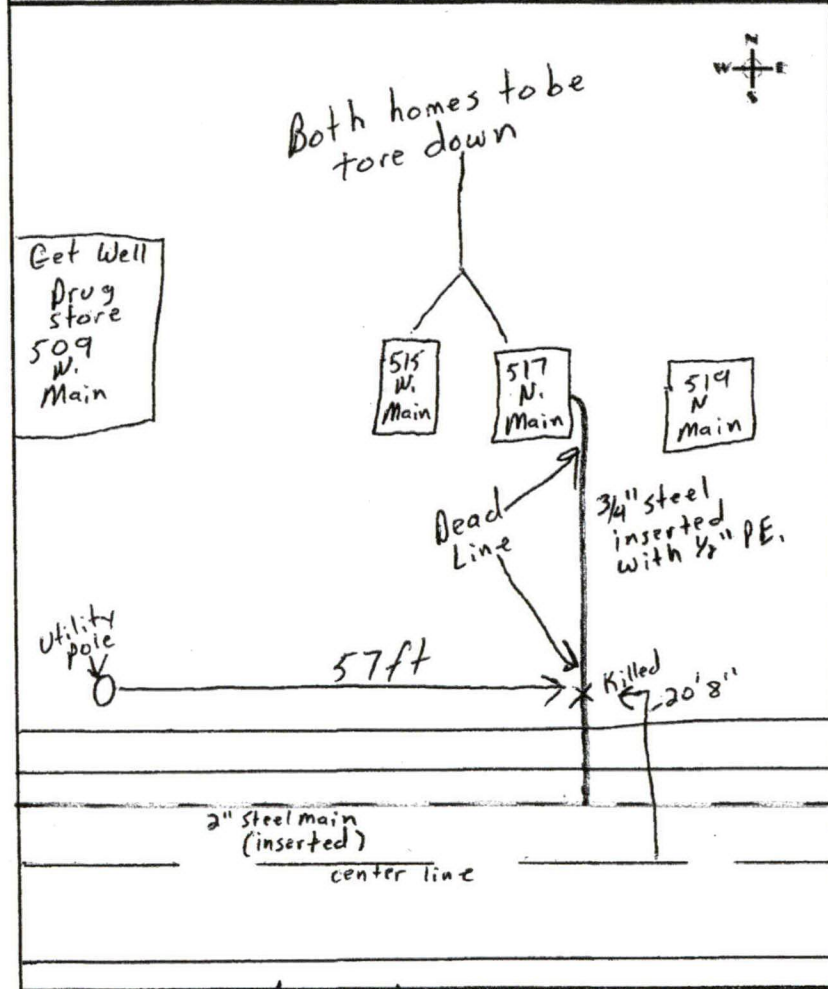 N
W E
S
Both homes to be
tore down
Get Well
Drug
store
509
W.
Main
515
W.
Main
517
N.
Main
519
N
Main
Dead
Line
3/4" steel
inserted
with 1/2" PE.
Utility
pole
57ft
Killed
20'8"
2" Steel main
(inserted)
center line